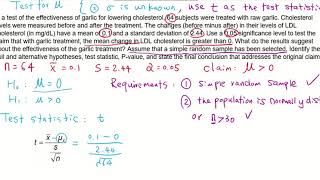 Test for μ { ① σ is unknown, use t as the test statistic
a test of the effectiveness of garlic for lowering cholesterol, 64 subjects were treated with raw garlic. Cholesterol
levels were measured before and after the treatment. The changes (before minus after) in their levels of LDL
cholesterol (in mg/dL) have a mean of 0.1 and a standard deviation of 2.44. Use a 0.05 significance level to test the
claim that with garlic treatment, the mean change in LDL cholesterol is greater than 0. What do the results suggest
about the effectiveness of the garlic treatment? Assume that a simple random sample has been selected. Identify the
null and alternative hypotheses, test statistic, P-value, and state the final conclusion that addresses the original claim.
n = 64 x̄ = 0.1 s = 2.44 α = 0.05 claim: μ > 0
H₀: μ = 0 Requirements: ① simple random sample ✓
H₁: μ > 0 ② the population is normally dis
or n > 30 ✓
Test statistic: t
t = (x̄ − μ) / (s / √n) = (0.1 − 0) / (2.44 / √64)